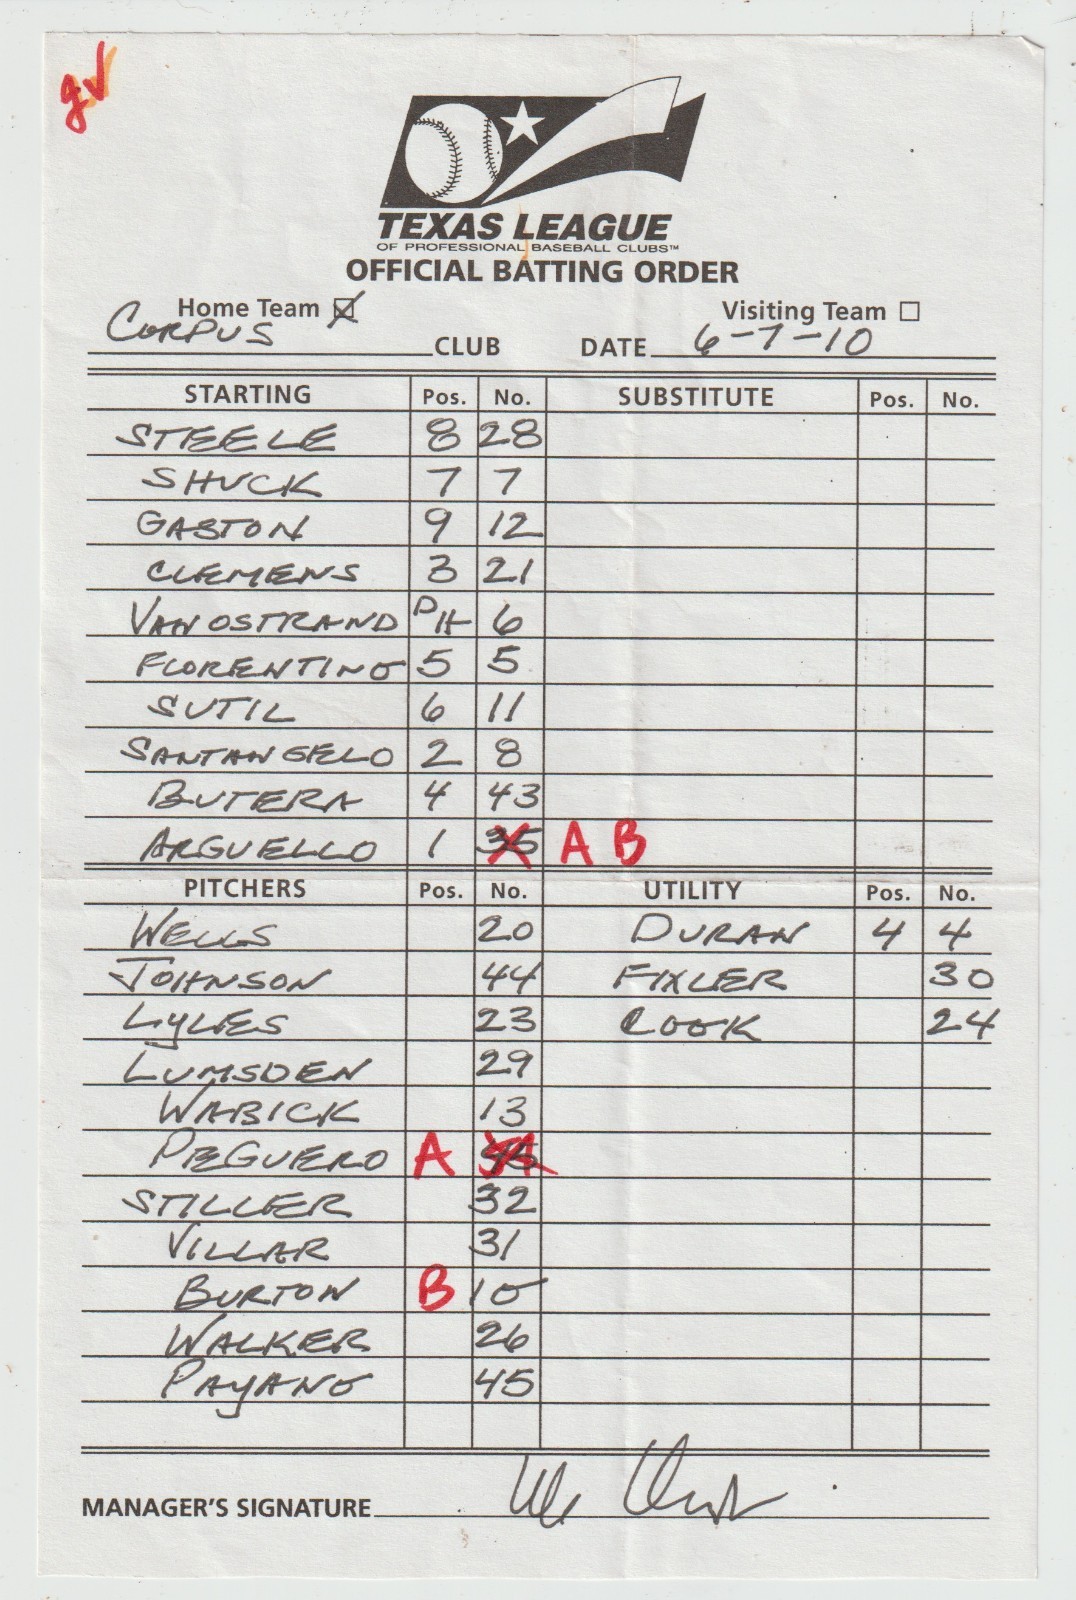 gv
TEXAS LEAGUE
OF PROFESSIONAL BASEBALL CLUBS™
OFFICIAL BATTING ORDER
Home Team ☒ Visiting Team ☐
CORPUS CLUB DATE 6-7-10
STARTING Pos. No. SUBSTITUTE Pos. No.
STEELE 8 28
SHUCK 7 7
GASTON 9 12
CLEMENS 3 21
VAN OSTRAND DH 6
FLORENTINO 5 5
SUTIL 6 11
SANTANGELO 2 8
BUTERA 4 43
ARGUELLO 1 35 A B
PITCHERS Pos. No. UTILITY Pos. No.
WELLS 20 DURAN 4 4
JOHNSON 44 FIXLER 30
LYLES 23 COOK 24
LUMSDEN 29
WABICK 13
PEGUERO A
STILLER 32
VILLAR 31
BURTON B 10
WALKER 26
PAYANO 45
MANAGER'S SIGNATURE